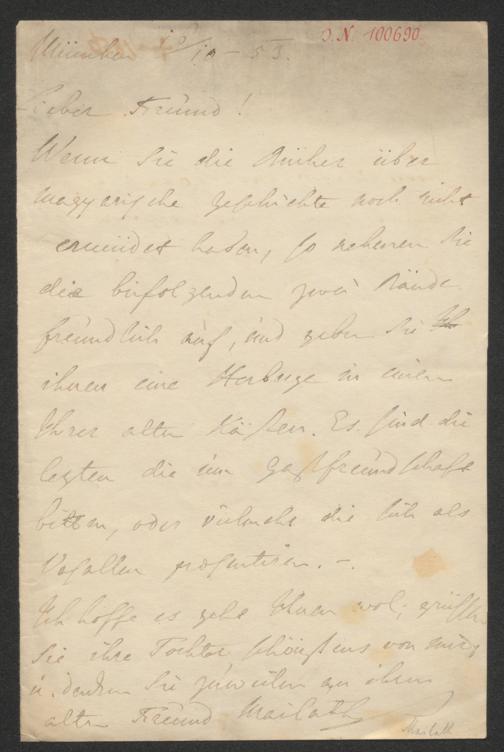 J.N. 100690.
München /10 – 53.
Lieber Freund!
Wenn Sie die Bücher über
magyarische Geschichte noch nicht
ermüdet haben, so nehmen Sie
die beifolgenden zwei Bände
freundlich auf, und geben Sie
ihnen eine Herberge in einem
Ihrer alten Kästen. Es sind die
lezten die um Gastfreundschaft
bitten, oder vielmehr die sich als
Vasallen präsentiren. –.
Ich hoffe es gehe Ihnen wol, grüssen
Sie ihre Tochter schönstens von mir,
u. denken Sie zuweilen an ihren
alten Freund Mailath
Mailath